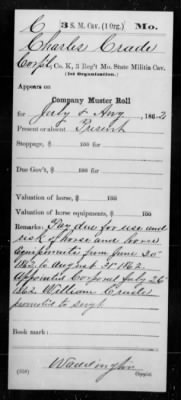 C 3 S. M. Cav. (1 Org.) Mo.
Charles Crade
Corp'l, Co. K, 3 Reg't Mo. State Militia Cav.
(1st Organization.)
Appears on
Company Muster Roll
for July & Aug, 1862
Present or absent Present
Stoppage, $ 100 for
Due Gov't, $ 100 for
Valuation of horse, $ 100
Valuation of horse equipments, $ 100
Remarks: Pay due for use and
risk of horse and horse
Equipments from June 30"
1862 to August 31" 1862.
Appointed Corporal July 26"
1862 William Crader
promoted to sergt
Book mark:
Waddington
(358) Copyist.